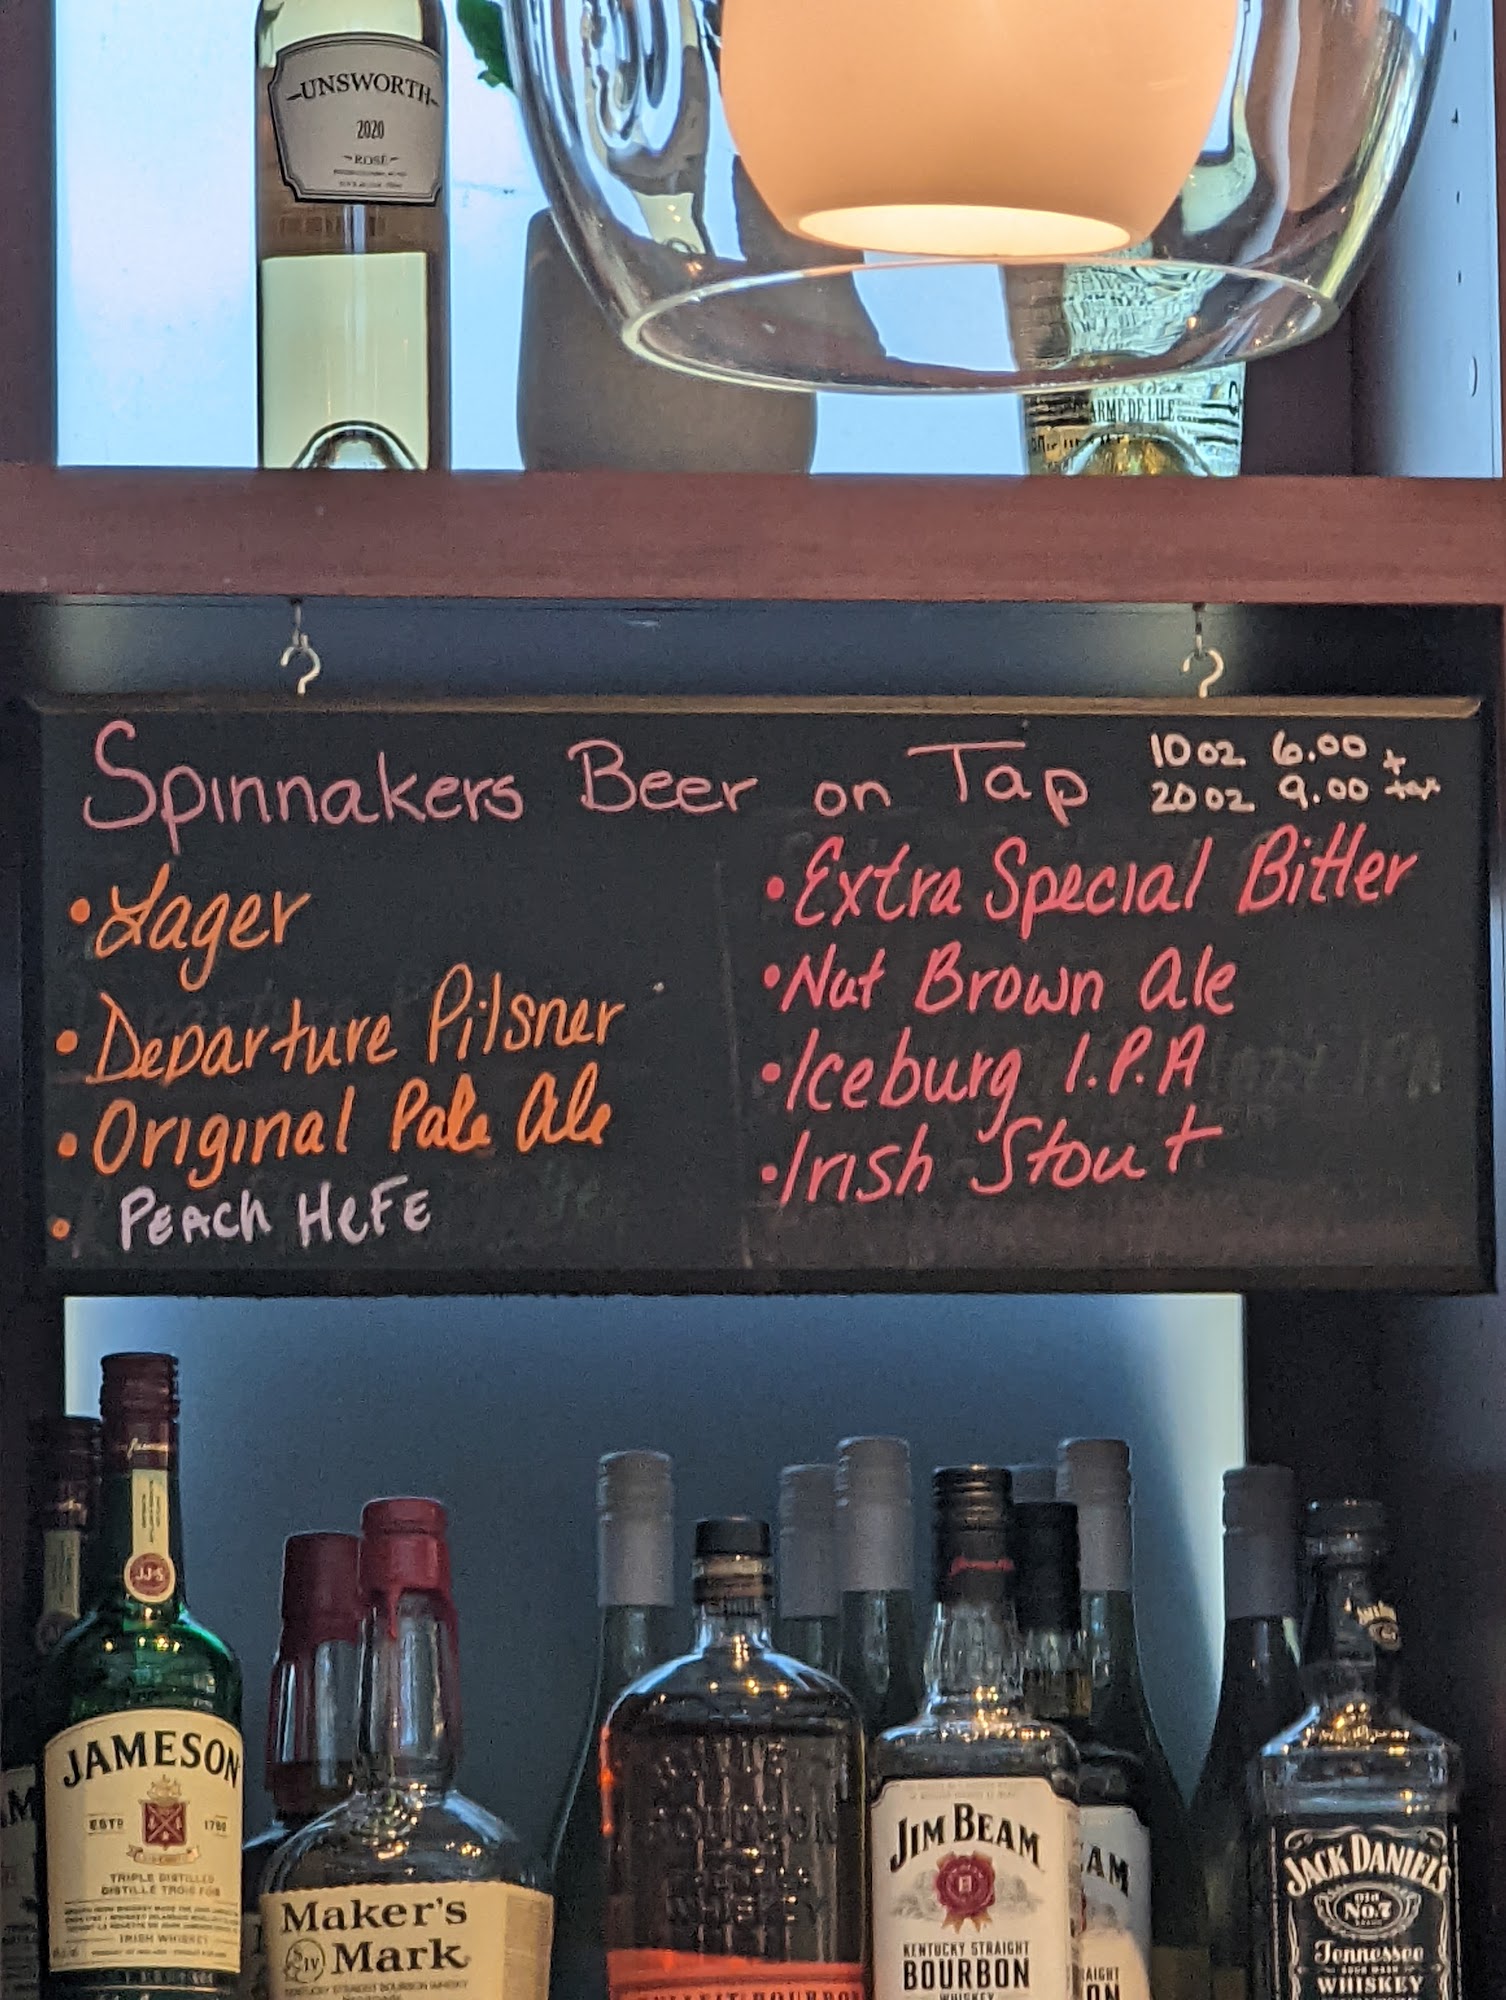 UNSWORTH
2020
ROSÉ
ARME DE LILL
Spinnakers Beer on Tap
10 oz 6.00 +
20 oz 9.00 tax
• Lager
• Departure Pilsner
• Original Pale Ale
• PEACH HeFE
• Extra Special Bitter
• Nut Brown Ale
• Iceburg I.P.A
• Irish Stout
JJ&S
JAMESON
ESTD 1780
TRIPLE DISTILLED
DISTILLÉ TROIS FOIS
IRISH WHISKEY
Maker's
SIV Mark
KENTUCKY STRAIGHT BOURBON WHISKY
BOURBON
BULLEIT BOURBON
JIM BEAM
KENTUCKY STRAIGHT
BOURBON
WHISKEY
AM
AIGHT
ON
JACK DANIEL'S
Old
No.7
BRAND
Tennessee
SOUR MASH
WHISKEY